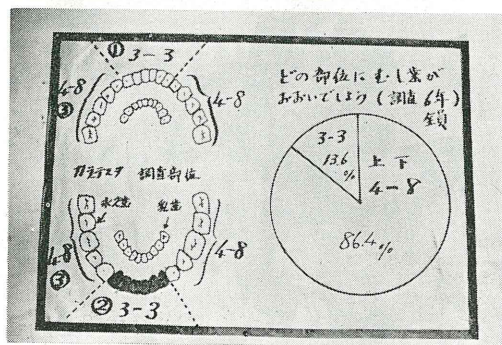 ① 3-3
4-8
③
4-8
カラテスタ 調査部位
永久歯
乳歯
4-8
③
4-8
② 3-3
どの部位にむし歯が
おおいでしよう(調査6年)
全員
3-3
13.6
%
上下
4-8
86.4%